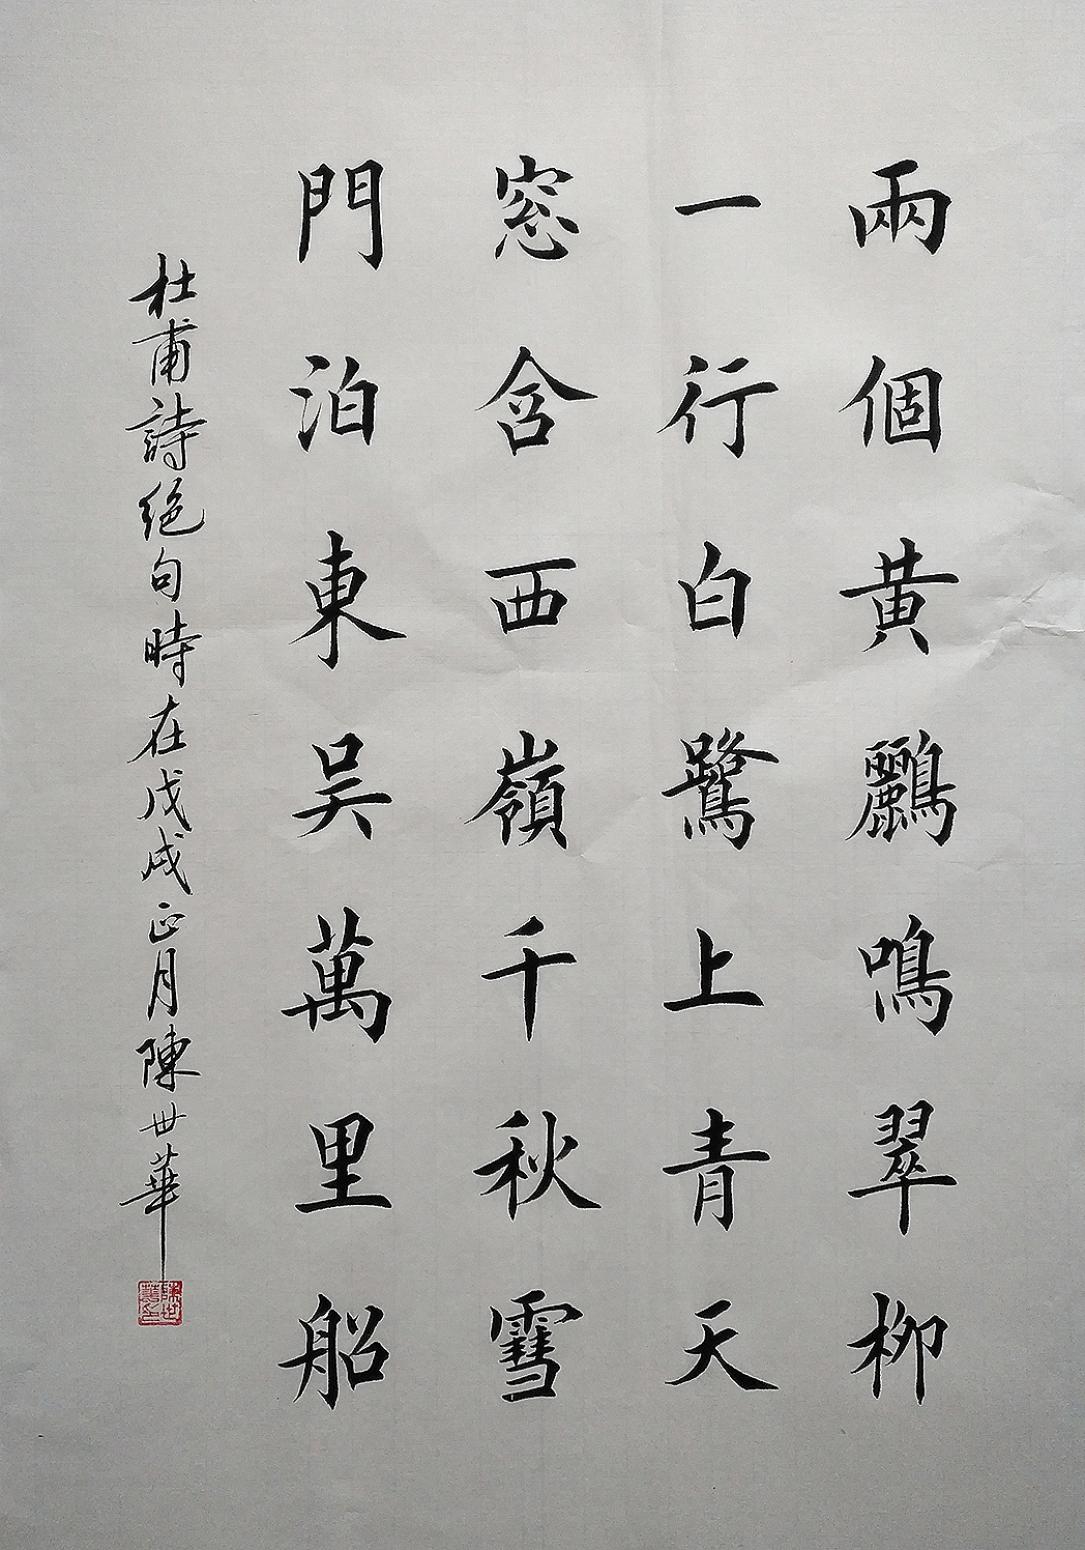 兩個黃鸝鳴翠柳
一行白鷺上青天
窓含西嶺千秋雪
門泊東吳萬里船
杜甫詩絕句時在戊戌正月陳世華
陳世華印